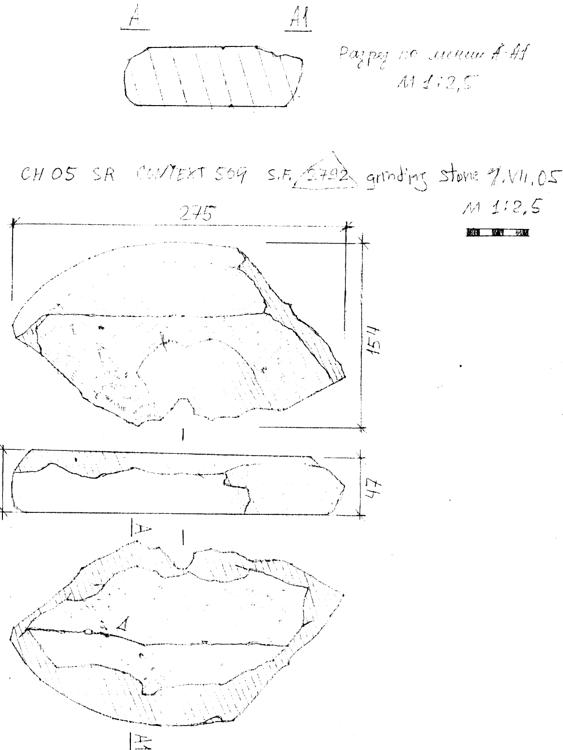 А А1
Разрез по линии А-А1
М 1:2,5
CH 05 SR CONTEXT 509 S.F. 5792 grinding stone VII.05
М 1:2,5
275
154
47
А
А1